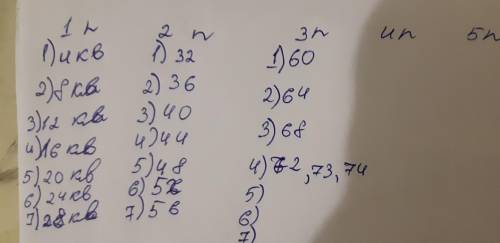 1 п 2 п 3п 4п 5п
1) 4 кв 1) 32 1) 60
2) 8 кв 2) 36 2) 64
3) 12 кв 3) 40 3) 68
4) 16 кв 4) 44 4) 72, 73, 74
5) 20 кв 5) 48 5)
6) 24 кв 6) 52 6)
7) 28 кв 7) 56 7)